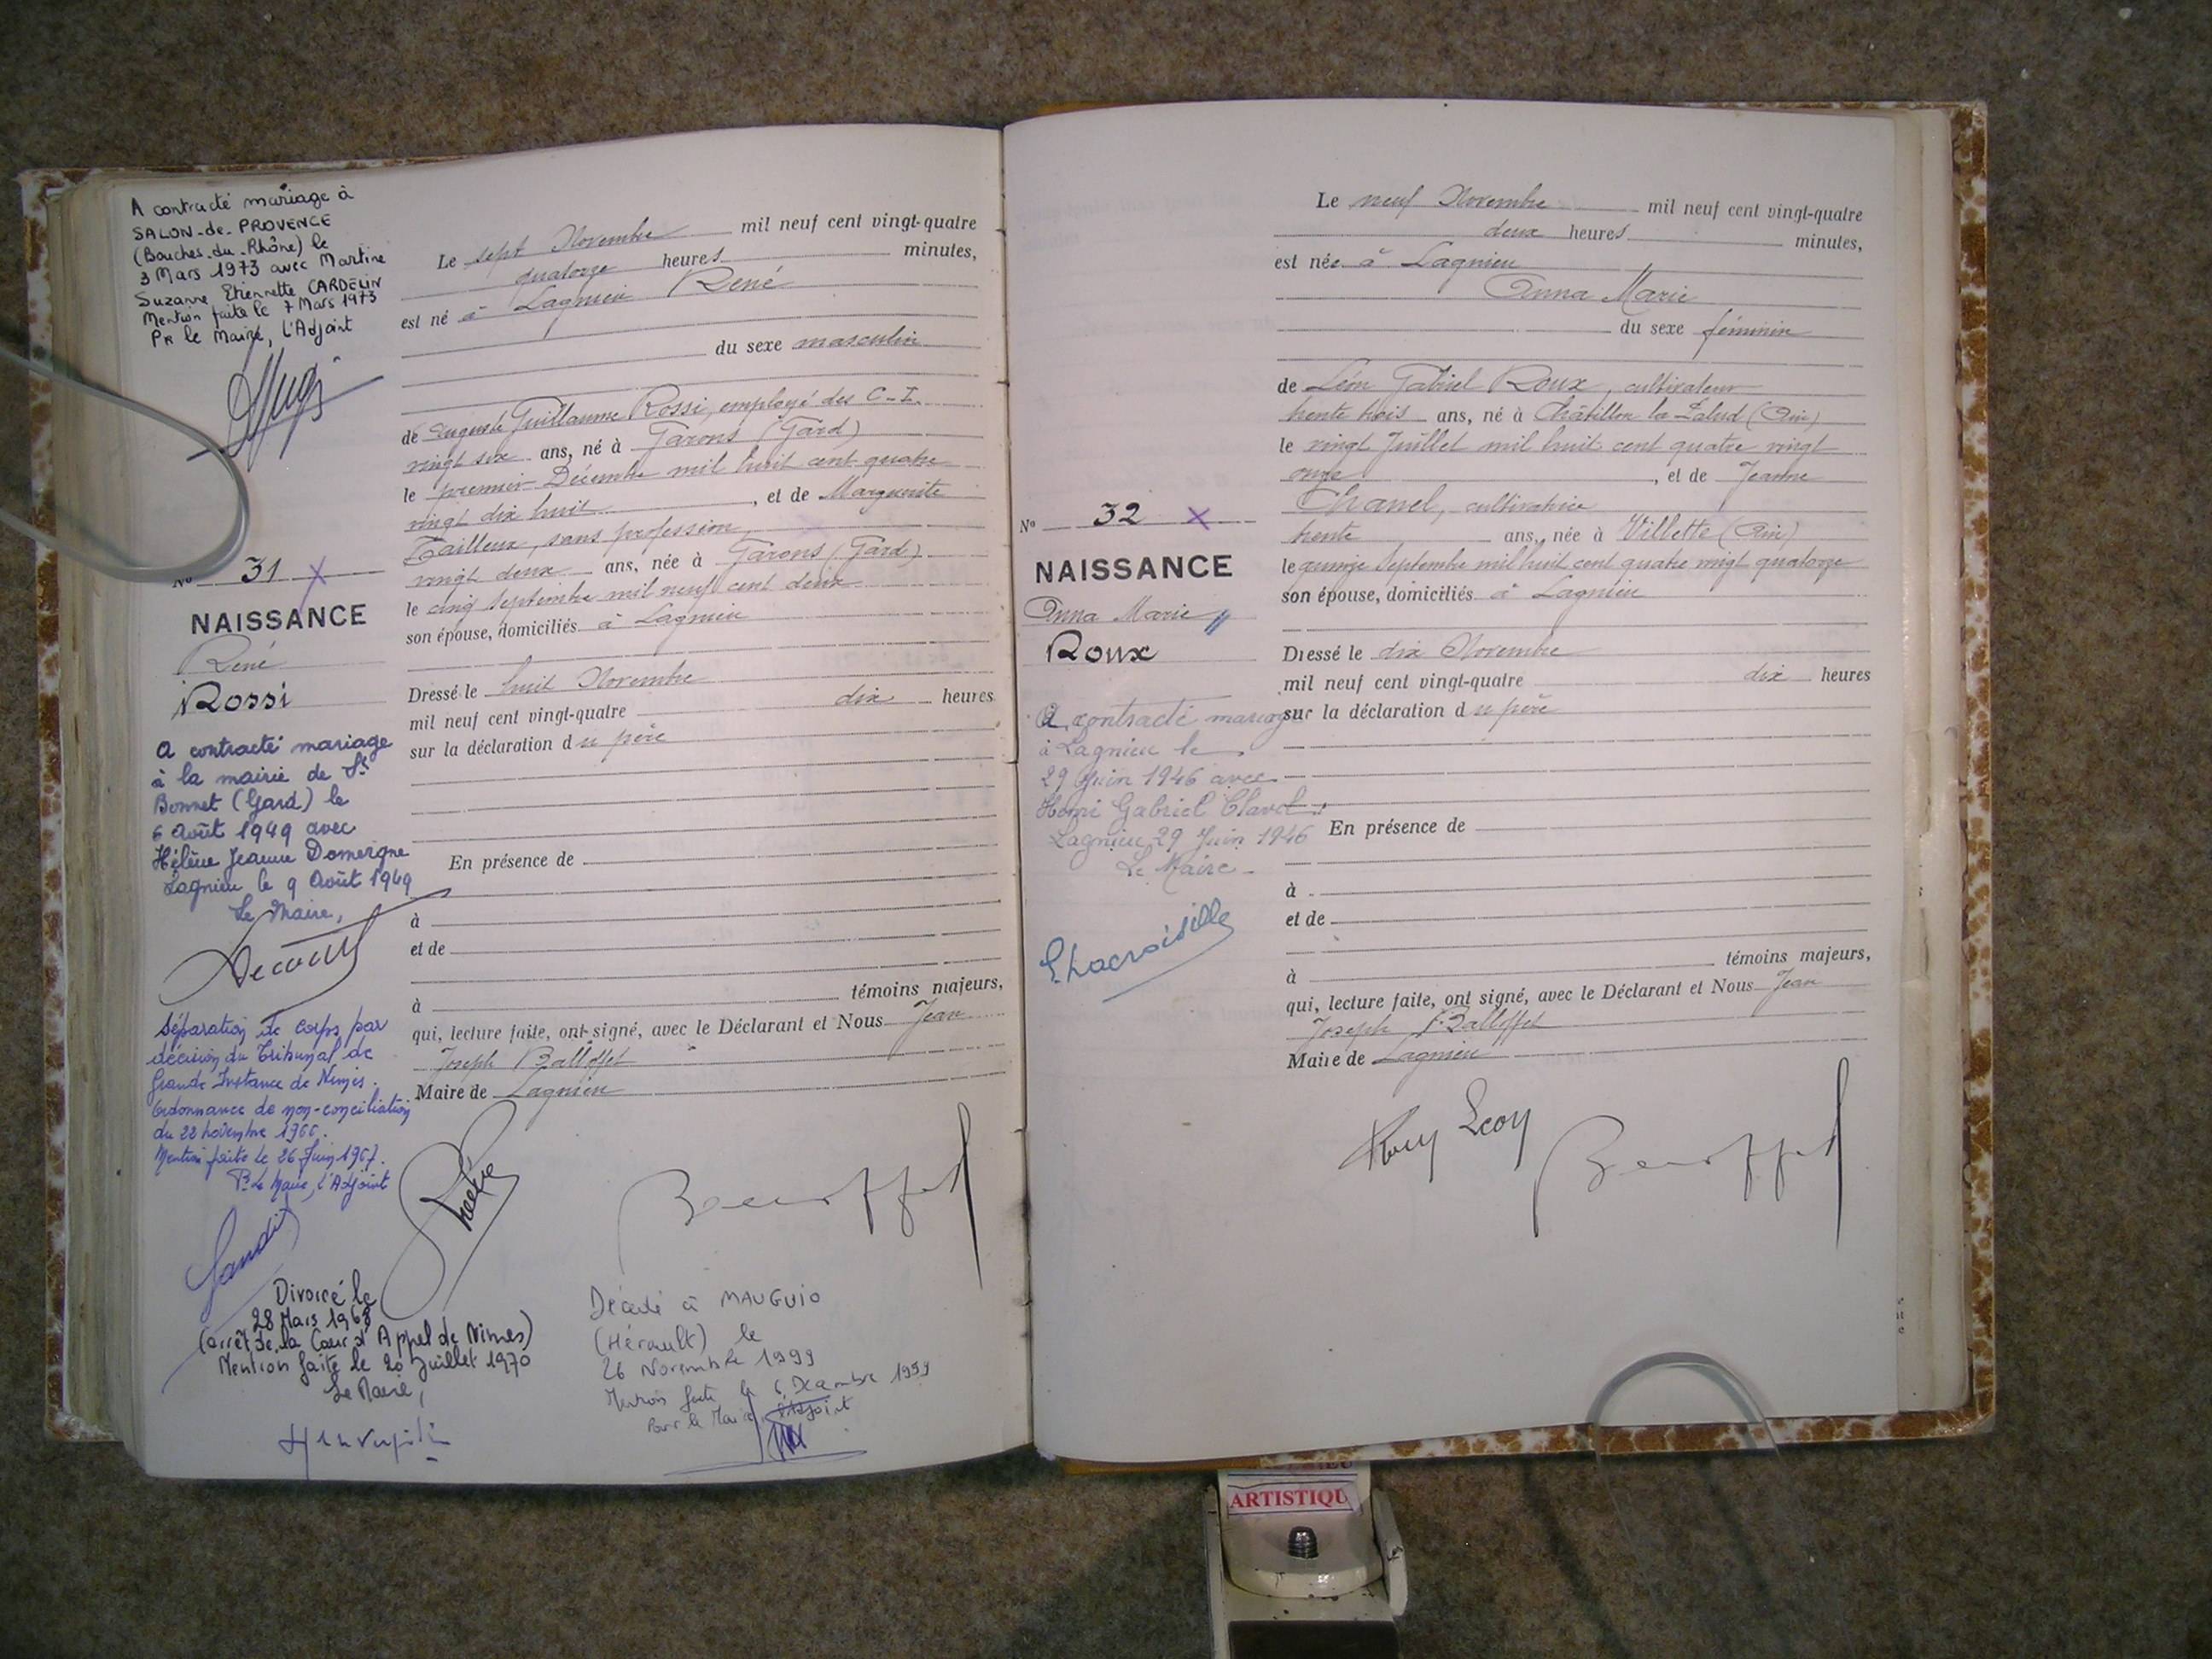 A contracté mariage à
SALON-de-PROVENCE
(Bouches-du-Rhône) le
3 Mars 1973 avec Martine
Suzanne Etiennette CARDELIN
Mention faite le 7 Mars 1973
Pr le Maire, l'Adjoint
No 31
NAISSANCE
René
Rossi
A contracté mariage
à la mairie de St
Bonnet (Gard) le
6 Août 1949 avec
Hélène Jeanne Domergne
Lagnieu le 9 Août 1949
Le Maire,
Séparation de corps par
décision du Tribunal de
Grande Instance de Nimes.
Ordonnance de non-conciliation
du 22 novembre 1966.
Mention faite le 26 Juin 1967.
Pr Le Maire, l'Adjoint
Divorcé le
28 Mars 1968
(arrêt de la Cour d'Appel de Nimes)
Mention faite le 20 Juillet 1970
Le Maire,
Le sept Novembre mil neuf cent vingt-quatre
quatorze heures minutes,
est né à Lagnieu René
du sexe masculin
de Auguste Guillaume Rossi, employé des C-I.
vingt six ans, né à Garons (Gard)
le premier Décembre mil huit cent quatre
vingt dix huit, et de Marguerite
Tailleux, sans profession,
vingt deux ans, née à Garons (Gard)
le cinq Septembre mil neuf cent deux
son épouse, domiciliés à Lagnieu
Dressé le huit Novembre
mil neuf cent vingt-quatre dix heures
sur la déclaration du père
En présence de
à
et de
à témoins majeurs,
qui, lecture faite, ont signé, avec le Déclarant et Nous Jean
Joseph Balloffet
Maire de Lagnieu
Décédé à MAUGUIO
(Hérault) le
26 Novembre 1999
Mention faite le 6 Décembre 1999
Pour le Maire, l'Adjoint
No 32
NAISSANCE
Anna Marie
Roux
A contracté mariage
à Lagnieu le
29 Juin 1946 avec
Henri Gabriel Clavel
Lagnieu 29 Juin 1946
Le Maire
Le neuf Novembre mil neuf cent vingt-quatre
deux heures minutes,
est née à Lagnieu
Anna Marie
du sexe féminin
de Léon Gabriel Roux, cultivateur
trente trois ans, né à Châtillon la Palud (Ain)
le vingt Juillet mil huit cent quatre vingt
onze, et de Jeanne
Chanel, cultivatrice
trente ans, née à Villette (Ain)
le quinze Septembre mil huit cent quatre vingt quatorze
son épouse, domiciliés à Lagnieu
Dressé le dix Novembre
mil neuf cent vingt-quatre dix heures
sur la déclaration du père
En présence de
à
et de
à témoins majeurs,
qui, lecture faite, ont signé, avec le Déclarant et Nous Jean
Joseph Balloffet
Maire de Lagnieu
ARTISTIQU